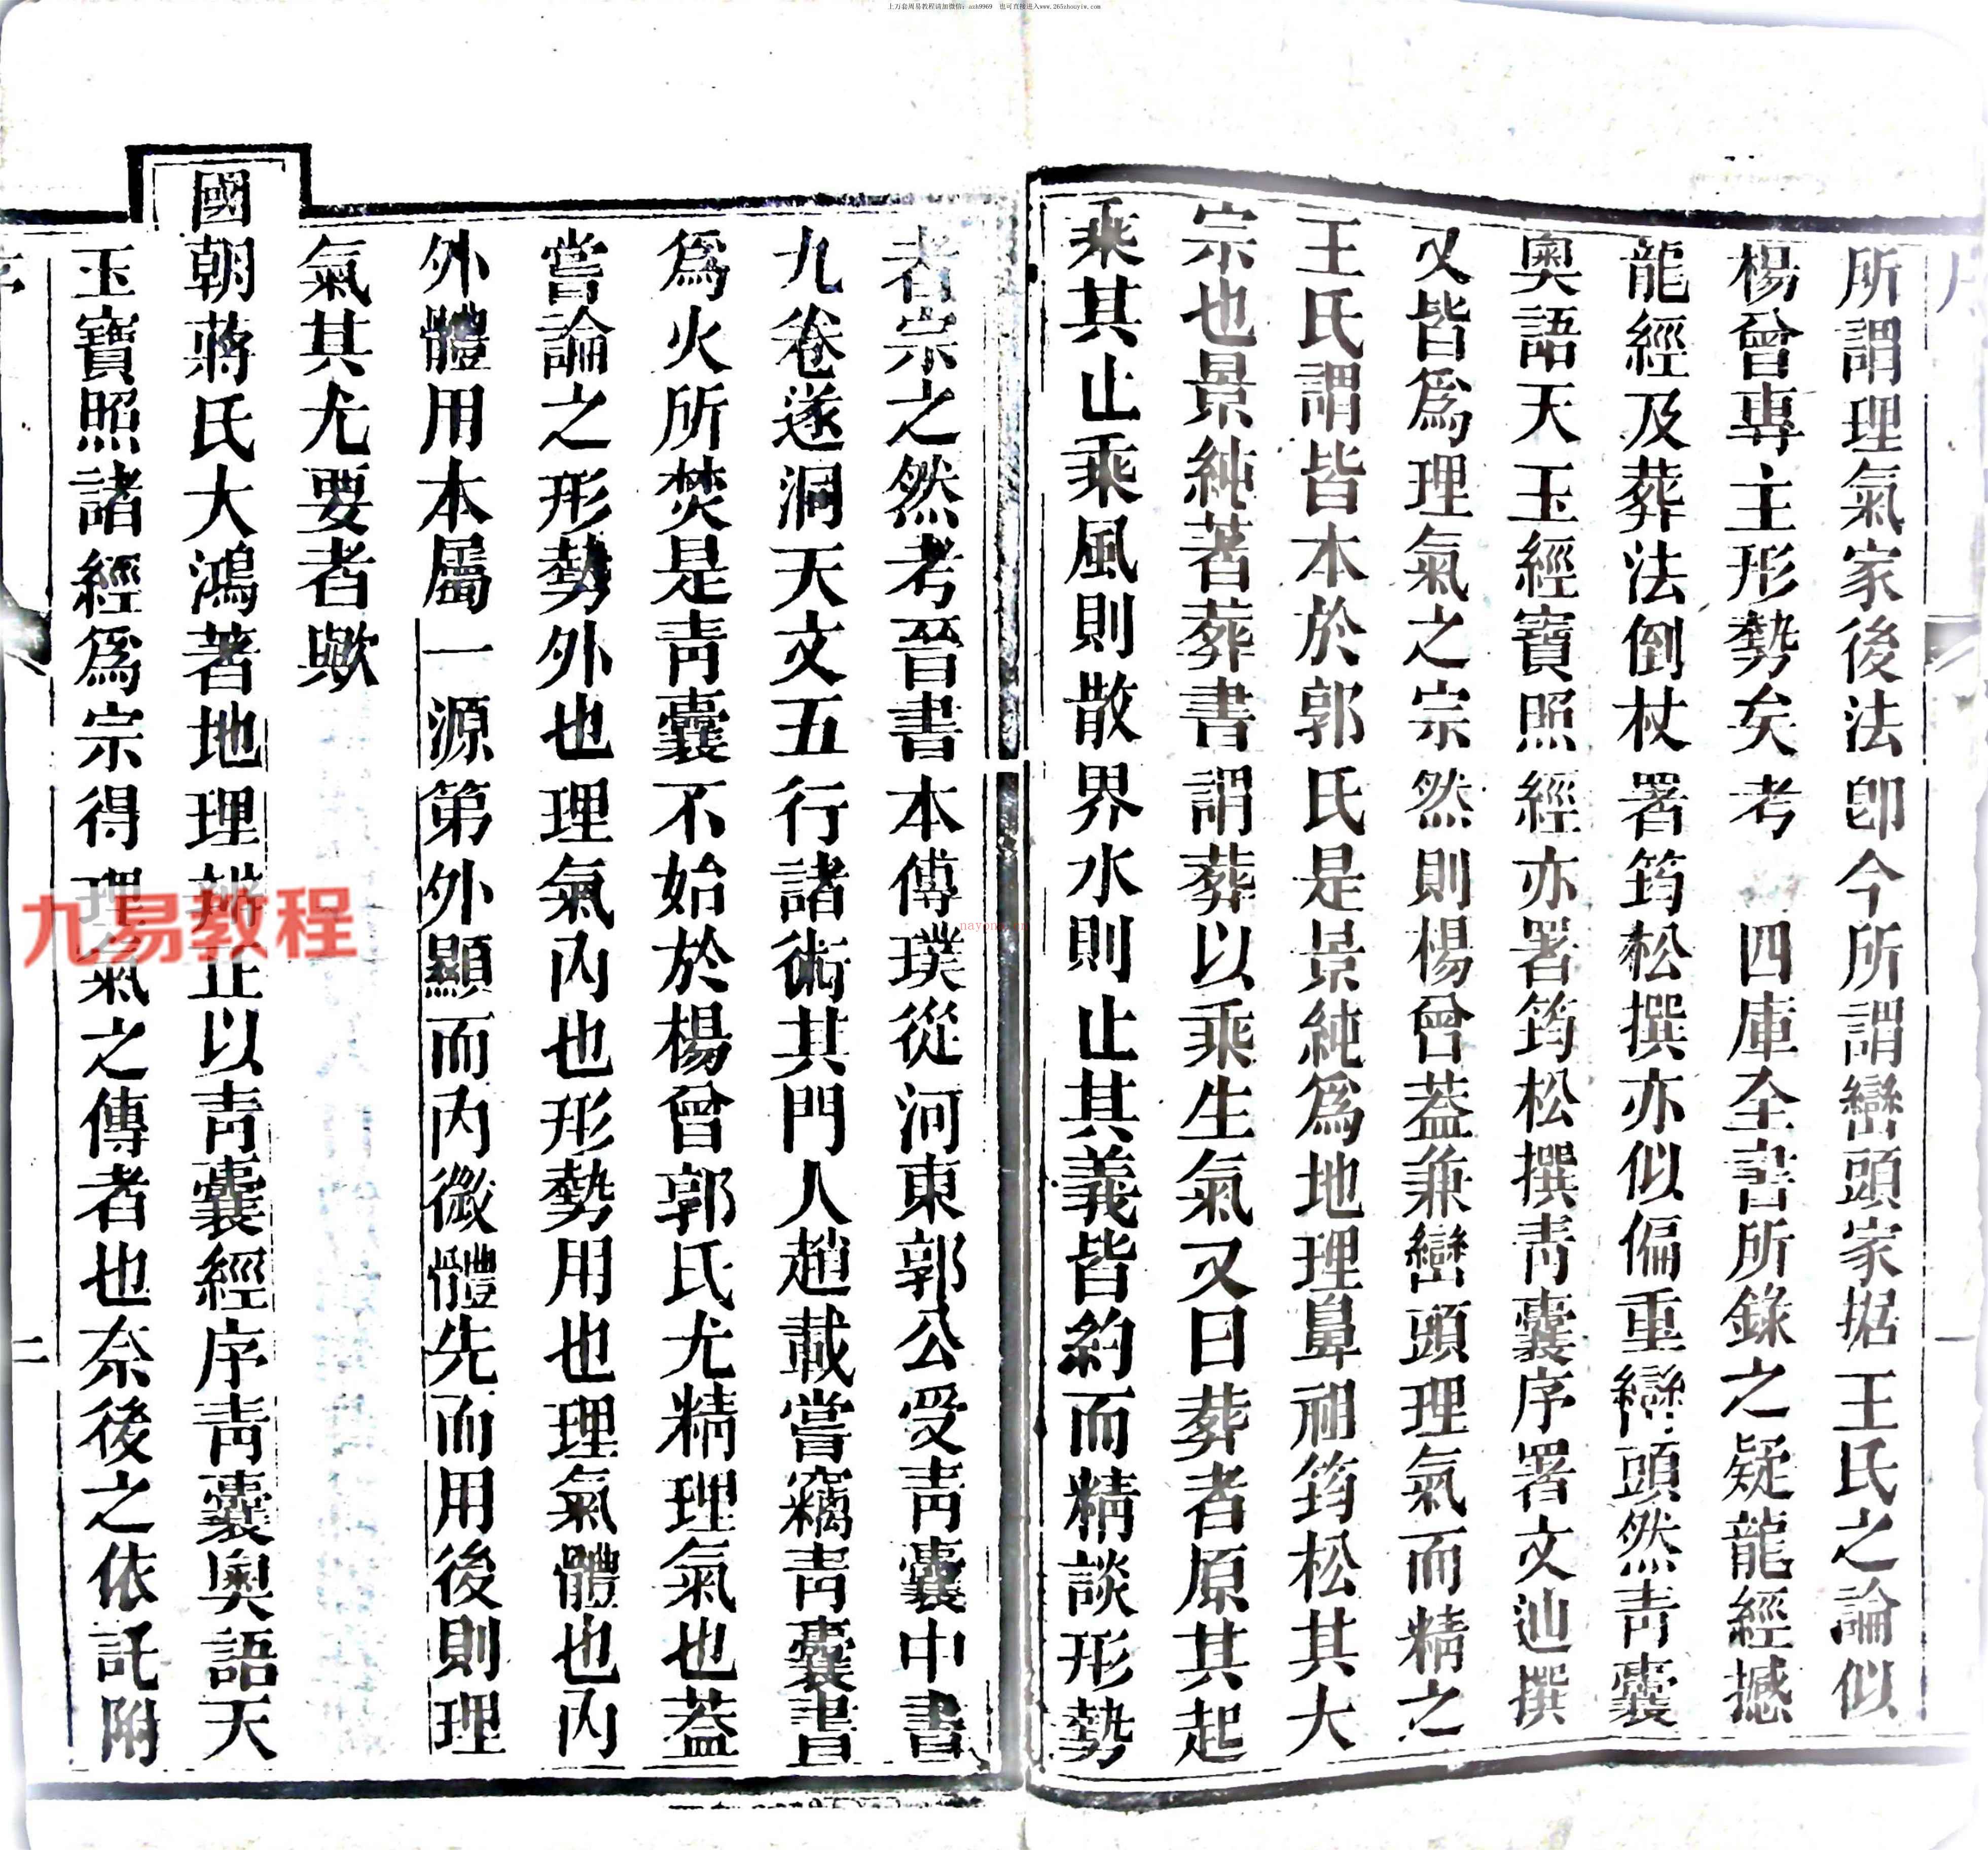 上万套周易教程请加微信：
也可直接进入www.265zhouyiw.com
所謂理氣家後法卽今所謂巒頭家据王氏之論似
楊曾專主形勢矣考　四庫全書所錄之疑龍經撼
龍經及葬法倒杖署筠松撰亦似偏重巒頭然靑囊
奧語天玉經寶照經亦署筠松撰靑囊序署文辿撰
又皆爲理氣之宗然則楊曾蓋兼巒頭理氣而精之
王氏謂皆本於郭氏是景純爲地理鼻祖筠松其大
宗也景純著葬書謂葬以乘生氣又曰葬者原其起
乘其止乘風則散界水則止其義皆約而精談形勢
者宗之然考晉書本傳璞從河東郭公受靑囊中書
九卷遂洞天文五行諸術其門人趙載嘗竊靑囊書
爲火所焚是靑囊不始於楊曾郭氏尤精理氣也蓋
嘗論之形勢外也理氣內也形勢用也理氣體也內
外體用本屬一源第外顯而內微體先而用後則理
氣其尤要者歟
國朝蔣氏大鴻著地理辨正以靑囊經序靑囊奧語天
玉寶照諸經爲宗得理氣之傳者也奈後之依託附
二
九易教程